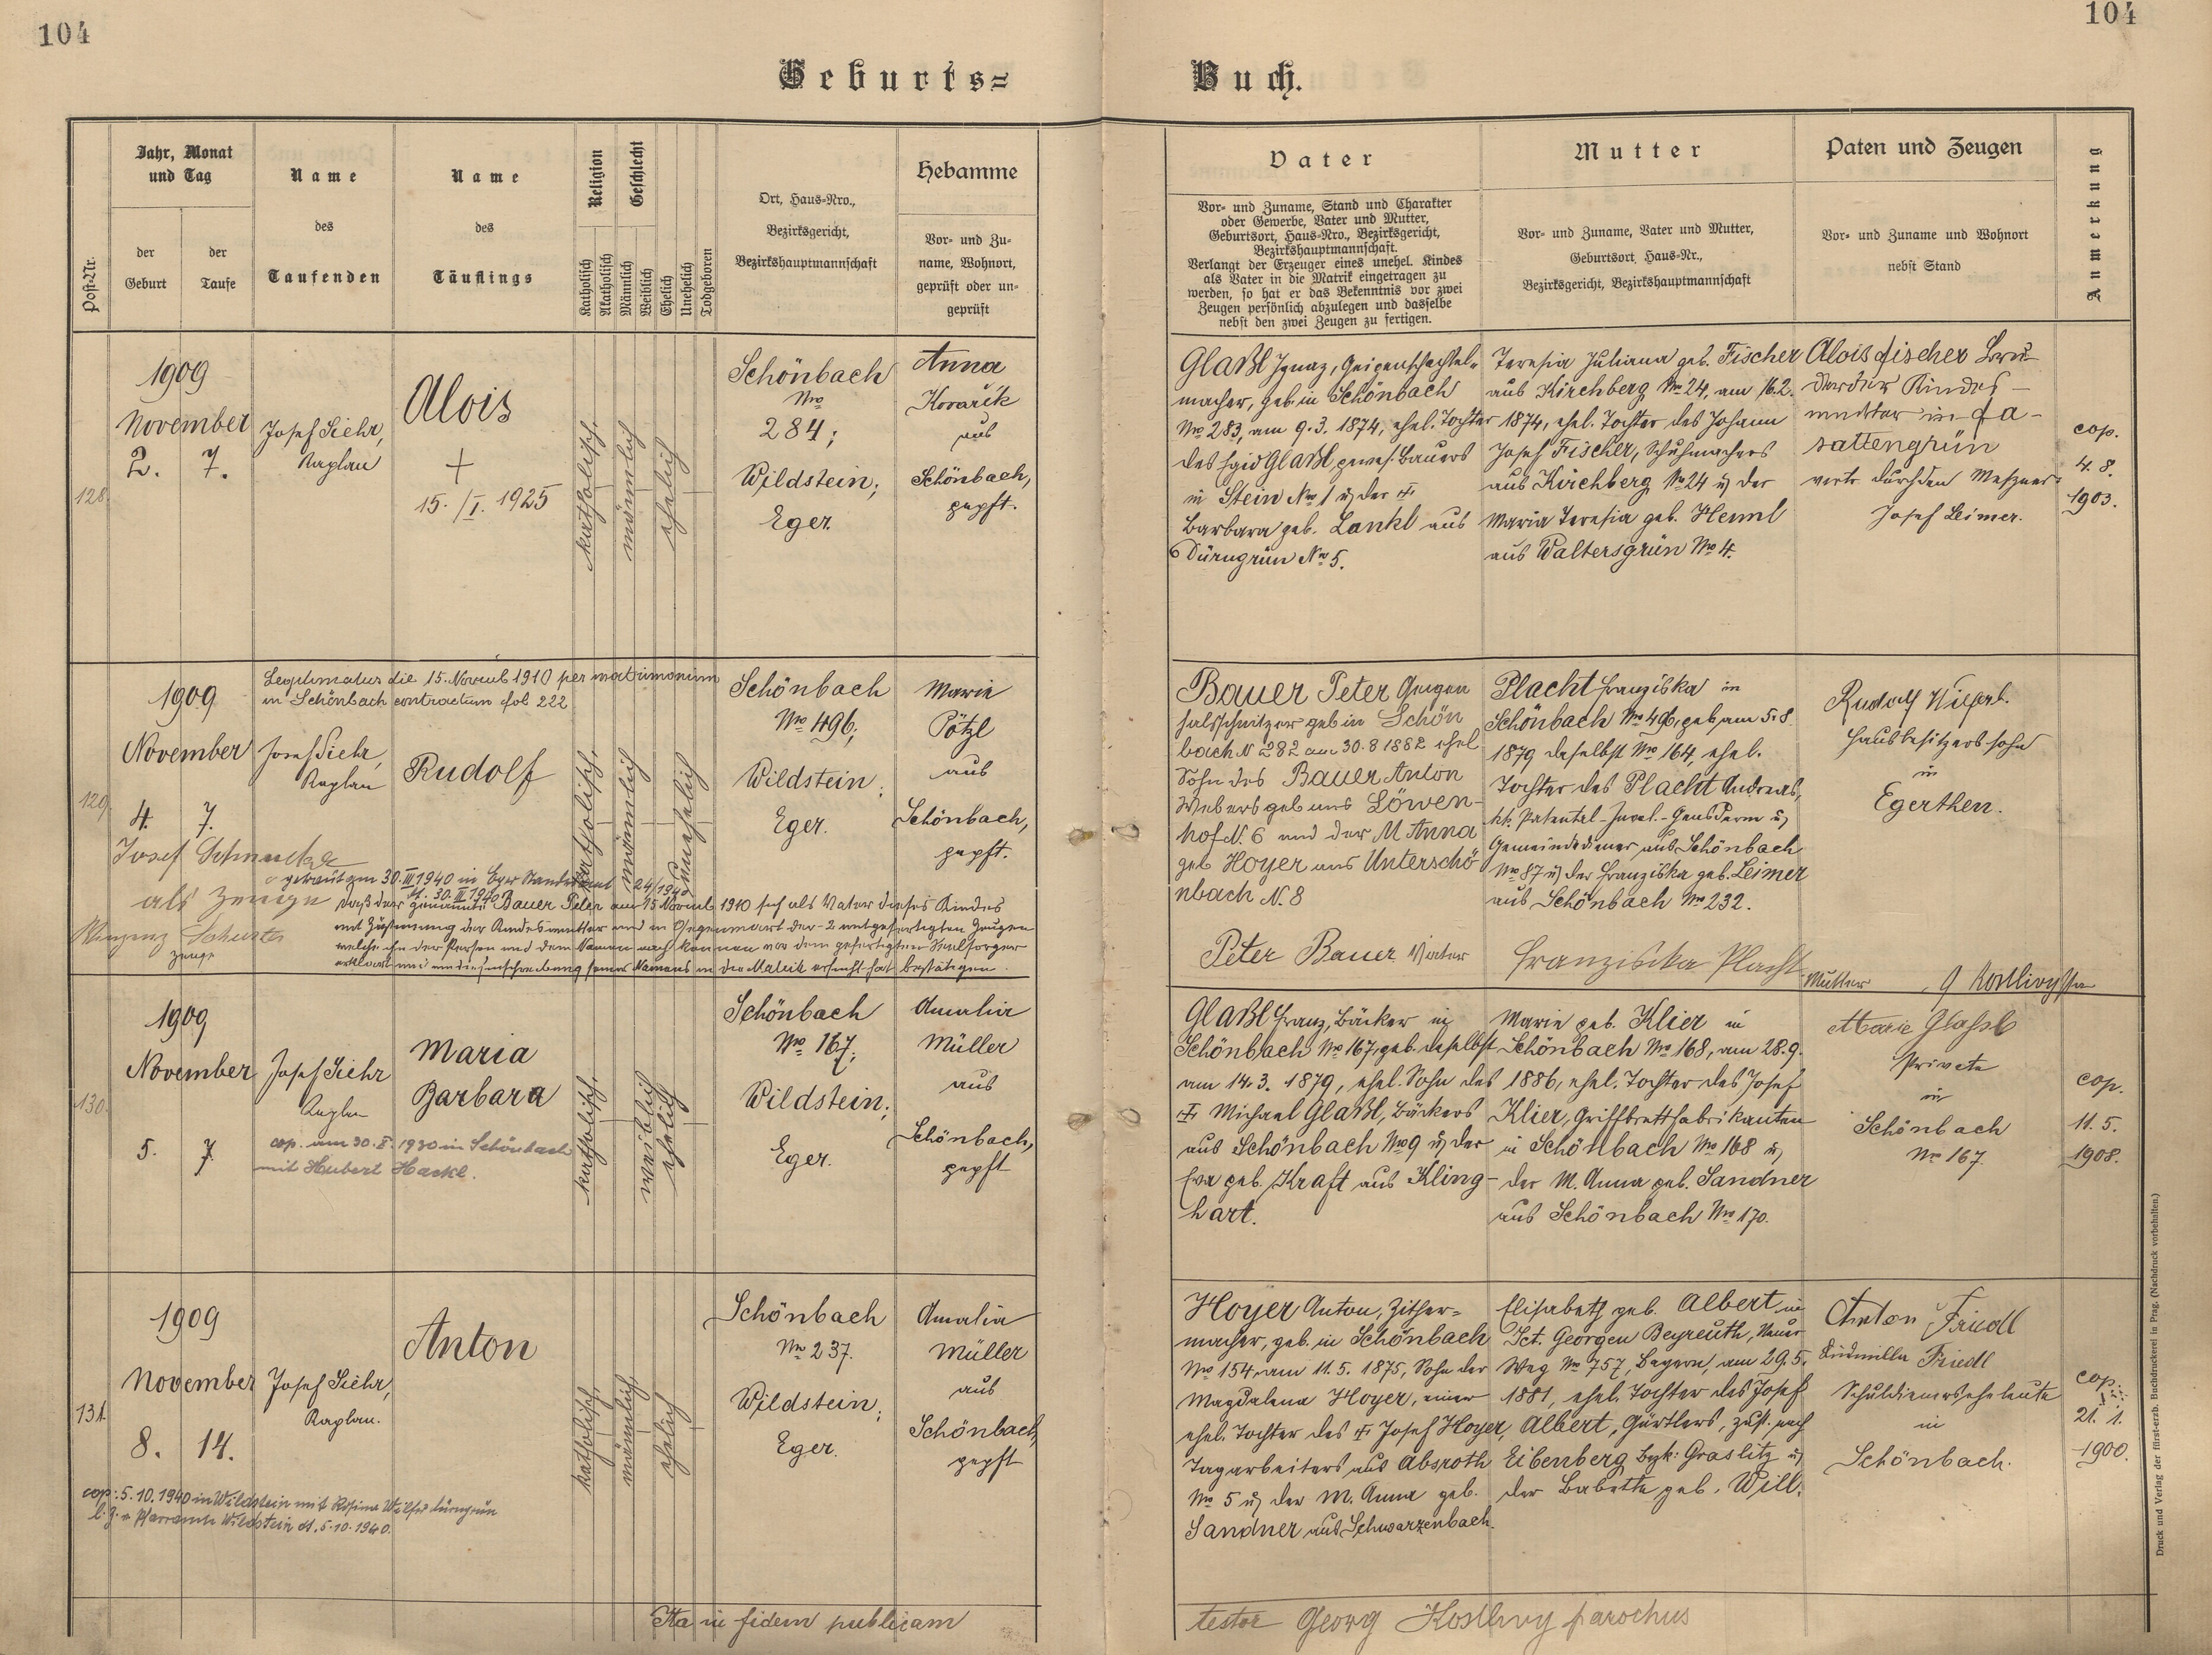 104
104
Geburts=
Buch.
Post-Nr.
Jahr, Monat
und Tag
der
Geburt
der
Taufe
Name
des
Taufenden
Name
des
Täuflings
Religion
Katholisch
Akatholisch
Geschlecht
Männlich
Weiblich
Ehelich
Unehelich
Todgeboren
Ort, Haus=Nro.,
Bezirksgericht,
Bezirkshauptmannschaft
Hebamme
Vor= und Zu=
name, Wohnort,
geprüft oder un=
geprüft
Vater
Vor= und Zuname, Stand und Charakter
oder Gewerbe, Vater und Mutter,
Geburtsort, Haus=Nro., Bezirksgericht,
Bezirkshauptmannschaft.
Verlangt der Erzeuger eines unehel. Kindes
als Vater in die Matrik eingetragen zu
werden, so hat er das Bekenntnis vor zwei
Zeugen persönlich abzulegen und dasselbe
nebst den zwei Zeugen zu fertigen.
Mutter
Vor= und Zuname, Vater und Mutter,
Geburtsort, Haus=Nr.,
Bezirksgericht, Bezirkshauptmannschaft
Paten und Zeugen
Vor= und Zuname und Wohnort
nebst Stand
Anmerkung
128.
1909
November
2. 7.
Josef Siehr,
Kaplan
Alois
+
15./I. 1925
katholisch.
männlich
ehelich
Schönbach
Nro
284;
Wildstein;
Eger.
Anna
Kovařik
aus
Schönbach,
gepft.
Glaßl Ignaz, Geigenschachtel=
macher, geb. in Schönbach
No 283, am 9.3. 1874, ehel. Tochter
des Egid Glaßl, gewes. Bauers
in Stein No 1 u der
Barbara geb. Lankl aus
Dürngrün No 5.
Teresia Juliana geb. Fischer
aus Kirchberg No 24, am 16.2.
1874, ehel. Tochter des Johann
Josef Fischer, Schuhmachers
aus Kirchberg No 24 u der
Maria Teresia geb. Heml
aus Waltersgrün No 4.
Alois Fischer Bru-
der der Kindes-
mutter in Fa-
sattengrün
vertr. durch den Meßner
Josef Leimer.
cop.
4. 8.
1903.
129.
Legitimatus die 15. Novemb 1910 per matrimonium
in Schönbach contractum fol 222
1909
November
4. 7.
Josef Siehr,
Kaplan
Rudolf
katholisch.
männlich
unehelich
Schönbach
No 496;
Wildstein;
Eger.
Maria
Pötzl
aus
Schönbach,
gepft.
Bauer Peter Geigen
halsschnitzer geb in Schön
bach N 282 am 30.8 1882 ehel
Sohn des Bauer Anton
Webers geb aus Löwen-
hof N. 6 und der M Anna
geb Hoyer aus Unterschö
nbach N. 8
Peter Bauer Vater
Placht Franziska in
Schönbach No 496, geb. am 5.8.
1879 daselbst No 164, ehel.
Tochter des Placht Andreas,
kk. Patental-Inval.-Gensdarm u
Gemeindediener aus Schönbach
No 87 u der Franziska geb. Leimer
aus Schönbach No 232.
Franziska Placht
Mutter
Rudolf
Hausbesitzerssohn
in
Egerthen.
Josef
als Zeuge
getraut am 30.III 1940 in Eger Standesamt 24/1940
30.III 1940
daß der genannte Bauer Peter am 15 Novemb 1910 sich als Vater dieses Kindes
mit Zustimmung der Kindesmutter und in Gegenwart der 2 mitgefertigten Zeugen
welche ihn der Person und dem Namen nach kennen vor dem gefertigten Seelsorger
erklärt und um die Einschreibung seines Namens in der Matrik ersucht hat bestätigen.
Zeuge
130.
1909
November
5. 7.
Josef Siehr
Kaplan
Maria
Barbara
cop. am 30.X. 1930 in Schönbach
mit Hubert Hackl.
katholisch.
weiblich
ehelich
Schönbach
No 167;
Wildstein;
Eger.
Amalia
Müller
aus
Schönbach,
gepft
Glaßl Franz, Bäcker in
Schönbach No 167, geb. daselbst
am 14.3. 1879, ehel. Sohn des
Michael Glaßl, Bäckers
aus Schönbach No 9 u der
Eva geb. Kraft aus Kling-
hart.
Marie geb. Klier in
Schönbach No 168, am 28.9.
1886, ehel. Tochter des Josef
Klier, Griffbrettfabrikanten
in Schönbach No 168 u
der M. Anna geb. Sandner
aus Schönbach No 170.
Marie Glassl
Private
in
Schönbach
No 167.
cop.
11. 5.
1908.
131.
1909
November
8. 14.
Josef Siehr,
Kaplan.
Anton
cop: 5.10.1940 in Wildstein mit Rosina
Pfarramte Wildstein dt. 5.10.1940.
katholisch.
männlich.
ehelich
Schönbach
No 237.
Wildstein;
Eger.
Amalia
Müller
aus
Schönbach,
gepft
Hoyer Anton, Zither=
macher, geb. in Schönbach
No 154 am 11.5. 1875, Sohn der
Magdalena Hoyer, einer
ehel. Tochter des Josef Hoyer,
Tagarbeiters aus Absroth
No 5 u der M. Anna geb.
Sandner aus Schwarzenbach.
Elisabeth geb. Albert in
Sct. Georgen Beyreuth, Neuer
Weg No 757, Bayern, am 29.5.
1881, ehel. Tochter des Josef
Albert, Gürtlers, zust. nach
Eibenberg Bzk: Graslitz u
der Babette geb. Will.
Anton Friedl
Ludmilla Friedl
Schuldienerseheleute
in
Schönbach.
cop.
21. 1.
1900.
Ita in fidem publicam
testor Georg Kostlivy parochus
Druck und Verlag der fürst-erzb. Buchdruckerei in Prag. (Nachdruck vorbehalten.)